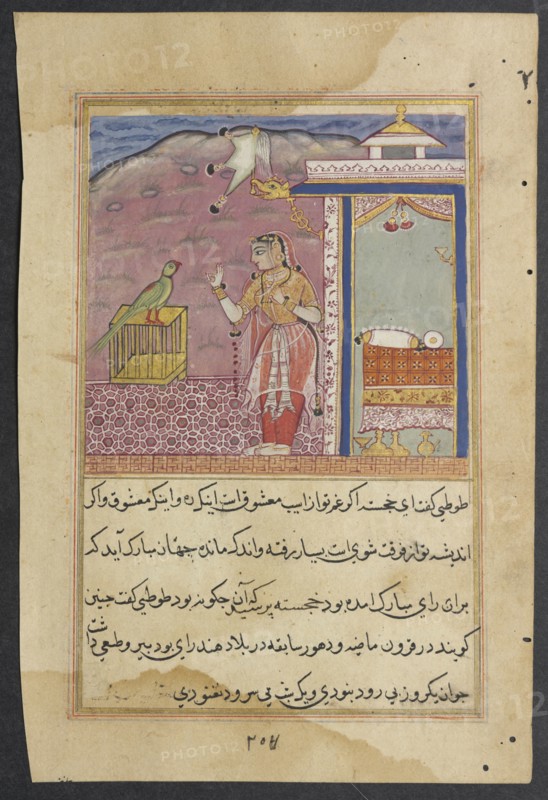 طوطي کفت اي خجسته اکر غم تو از اسب معشوق است اینک ره و اینک معشوق و اکر
اندیشه تو از فرقت شوي است بسیار رفته و اندک مانده جهان مبارک آید که
براي راي مبارک امده بود خجسته پرسید که آن چکونه بود طوطي کفت چنین
کویند در قرون ماضیه و دهور سابقه در بلاد هند راي بود پیر و طبعي داشت
جوان یکروز بي رود نبودي و یک شب بي سرود نغنودي
۲۰۵
PHOTO12